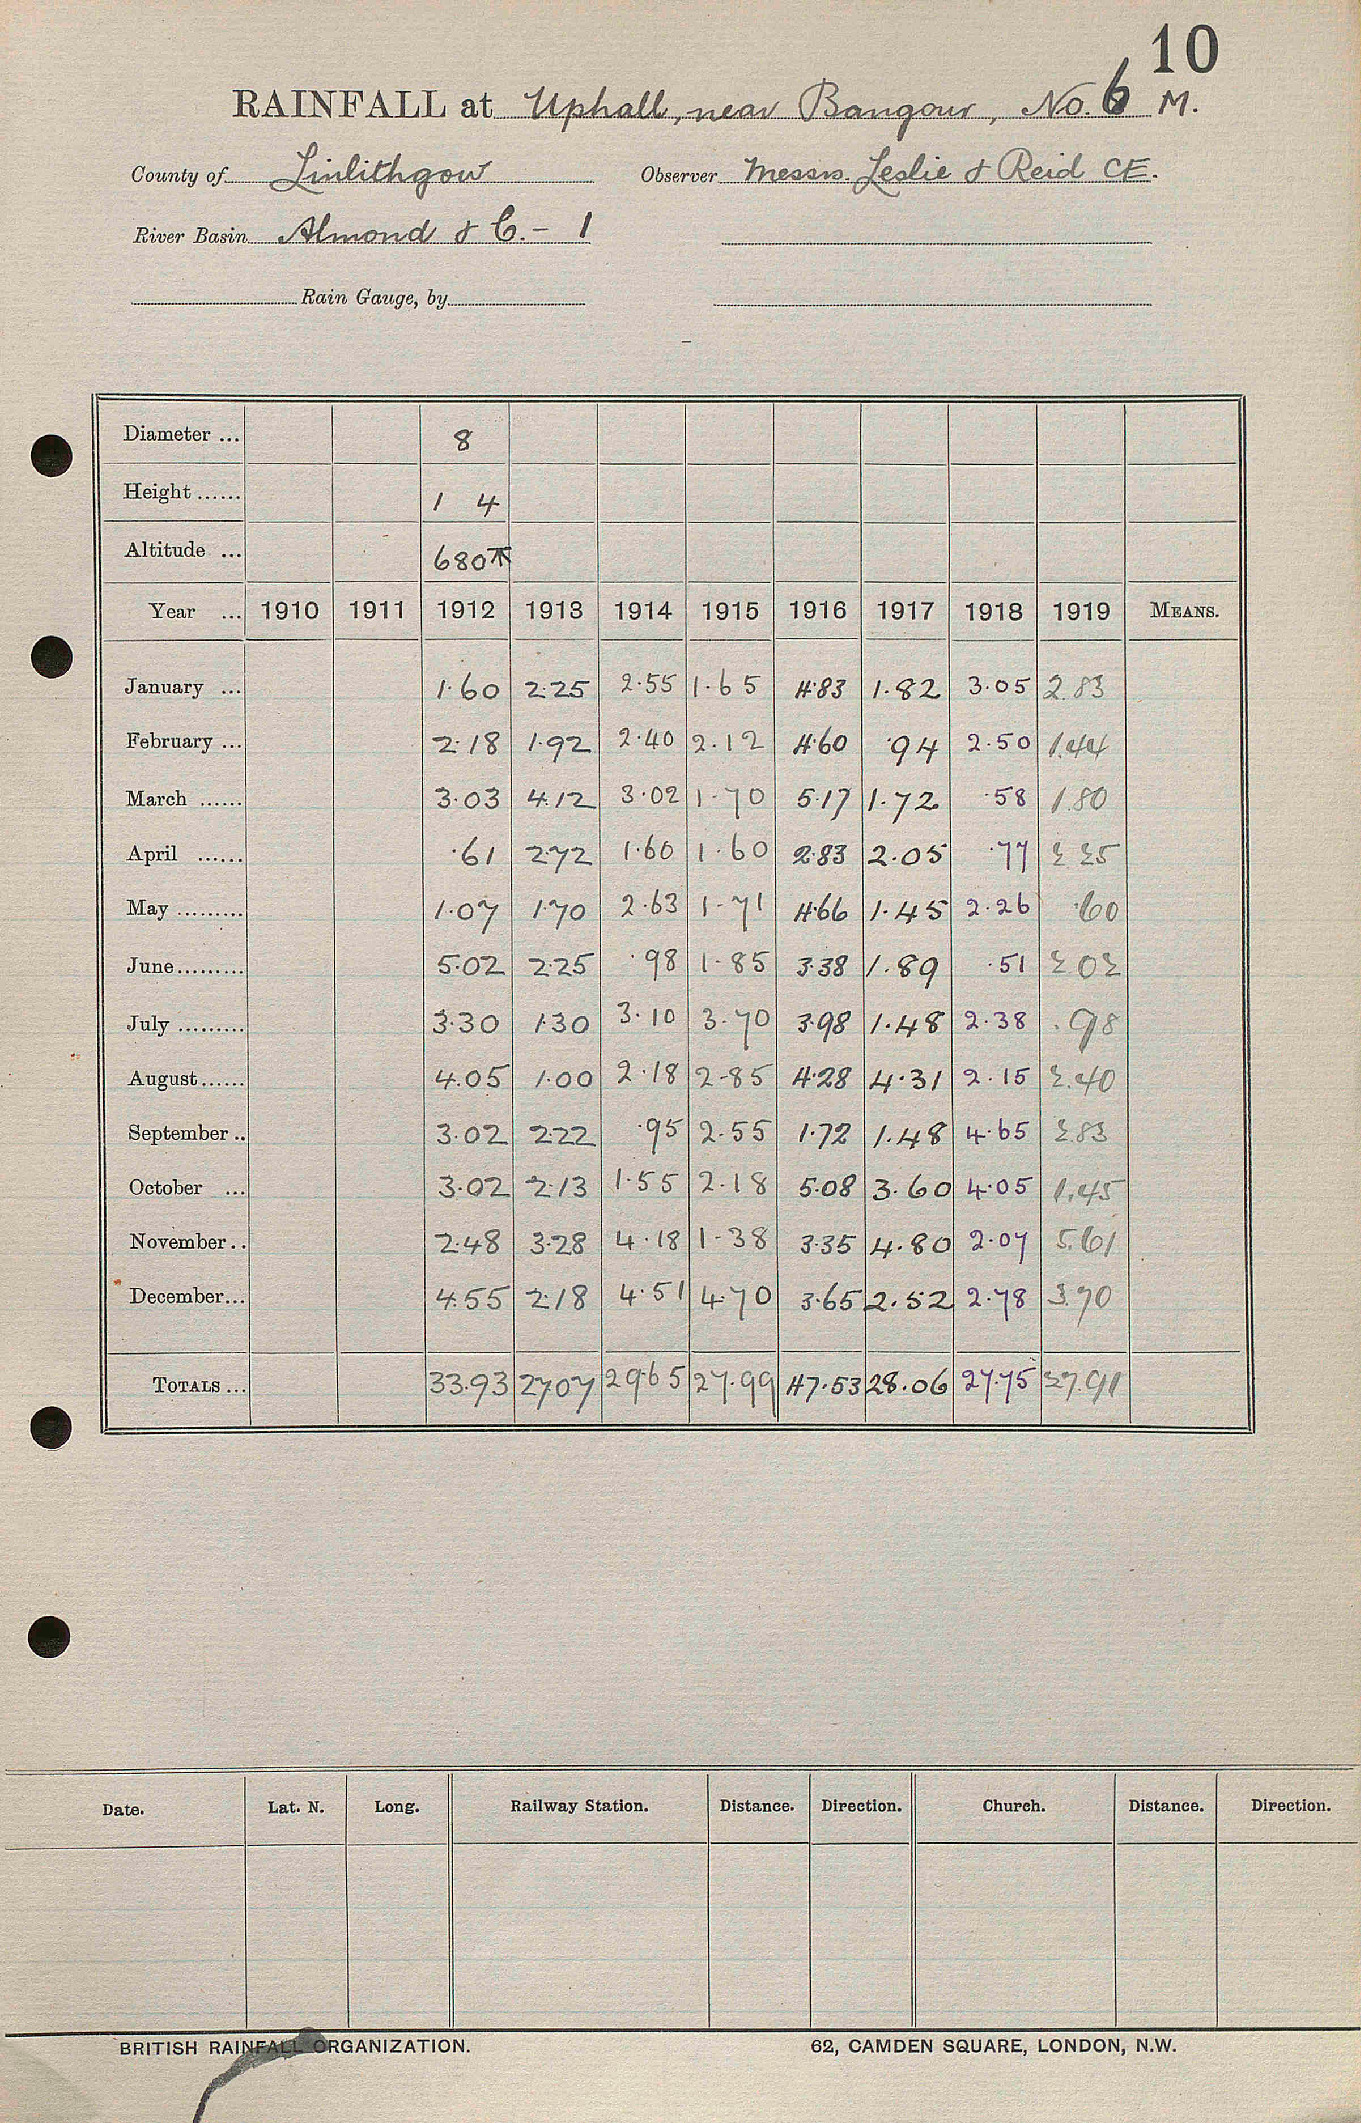 10
RAINFALL at Uphall, near Bangour, No. 6 M.
County of Linlithgow Observer Messrs. Leslie & Reid CE.
River Basin Almond & C. - 1
Rain Gauge, by
Diameter ... 8
Height ...... 1 4
Altitude ... 680
Year ... 1910 1911 1912 1913 1914 1915 1916 1917 1918 1919 MEANS.
January ... 1.60 2.25 2.55 1.65 4.83 1.82 3.05 2.83
February ... 2.18 1.92 2.40 2.12 4.60 .94 2.50 1.44
March ...... 3.03 4.12 3.02 1.70 5.17 1.72 .58 1.80
April ...... .61 2.72 1.60 1.60 2.83 2.05 .77 2.25
May ......... 1.07 1.70 2.63 1.71 4.66 1.45 2.26 .60
June ......... 5.02 2.25 .98 1.85 3.38 1.89 .51 2.02
July ......... 3.30 1.30 3.10 3.70 3.98 1.48 2.38 .98
August ...... 4.05 1.00 2.18 2.85 4.28 4.31 2.15 2.40
September .. 3.02 2.22 .95 2.55 1.72 1.48 4.65 2.83
October ... 3.02 2.13 1.55 2.18 5.08 3.60 4.05 1.45
November .. 2.48 3.28 4.18 1.38 3.35 4.80 2.07 5.61
December ... 4.55 2.18 4.51 4.70 3.65 2.52 2.78 3.70
TOTALS ... 33.93 27.07 29.65 27.99 47.53 28.06 27.75 27.91
Date. Lat. N. Long. Railway Station. Distance. Direction. Church. Distance. Direction.
BRITISH RAINFALL ORGANIZATION. 62, CAMDEN SQUARE, LONDON, N.W.